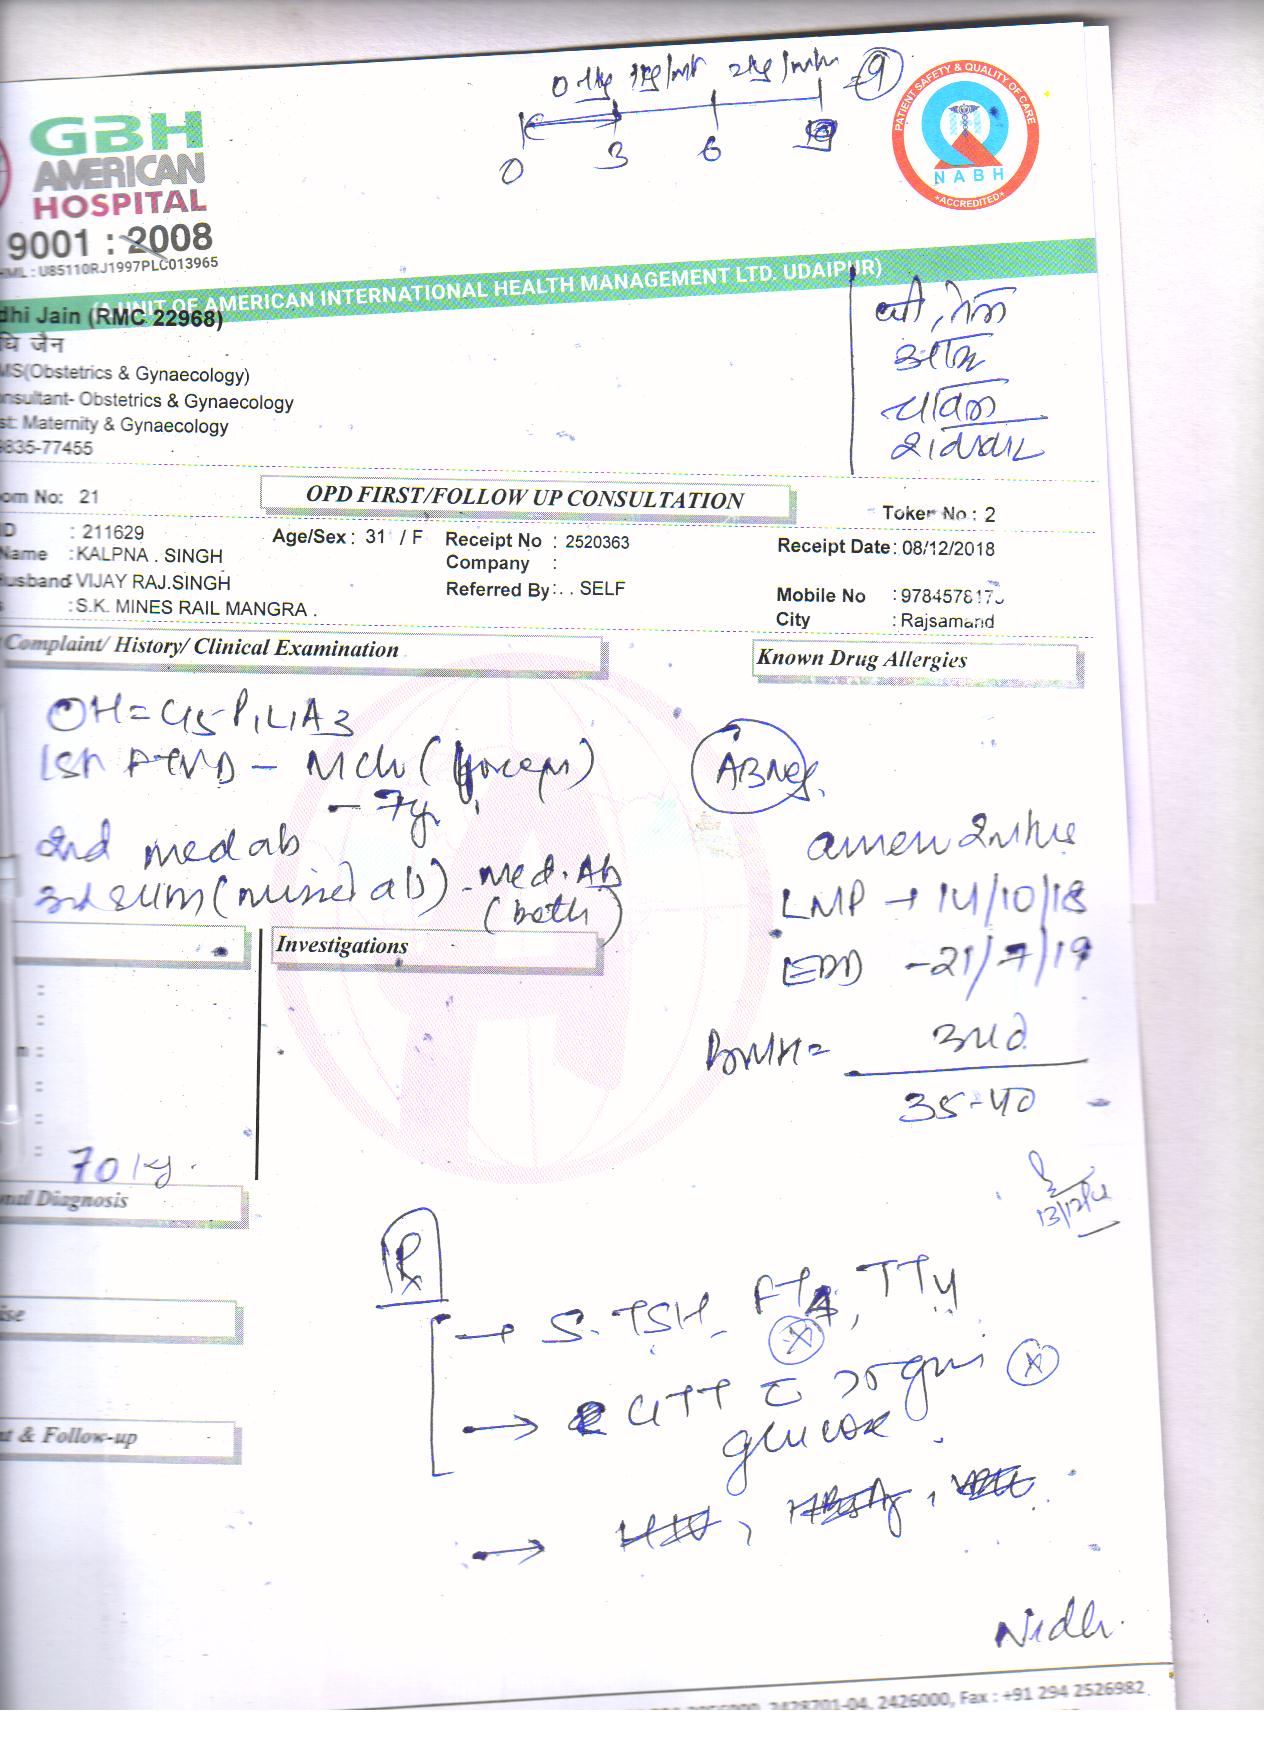 0-1kg 1kg/mt 2kg/mth = 9
0 3 6 9
GBH
AMERICAN
HOSPITAL
9001 : 2008
: U85110RJ1997PLC013965
PATIENT SAFETY & QUALITY OF CARE
NABH
ACCREDITED
(A UNIT OF AMERICAN INTERNATIONAL HEALTH MANAGEMENT LTD. UDAIPUR)
dhi Jain (RMC 22968)
धि जैन
MS(Obstetrics & Gynaecology)
onsultant- Obstetrics & Gynaecology
st: Maternity & Gynaecology
9835-77455
घी, तेल
चावल
om No: 21
OPD FIRST/FOLLOW UP CONSULTATION
Token No : 2
ID : 211629 Age/Sex : 31 / F Receipt No : 2520363 Receipt Date : 08/12/2018
Name : KALPNA . SINGH Company :
Husband : VIJAY RAJ.SINGH Referred By : . . SELF Mobile No : 978457817
s : S.K. MINES RAIL MANGRA . City : Rajsamand
Complaint/ History/ Clinical Examination
Known Drug Allergies
OH = G5P1L1A3
1st FTVD - Mch (forceps)
- 7y
AB Neg.
2nd med ab
3rd (missed ab) - med. Ab
(both)
amen 2 mths
LMP → 14/10/18
EDD - 21/7/19
Investigations
35-40
70 kg.
onal Diagnosis
Rx
→ S. TSH, FT4, TT4
→ GTT c 75 gm
glucose
→ HIV, HBsAg,
ise
t & Follow-up
Nidhi
2428701-04, 2426000, Fax : +91 294 2526982